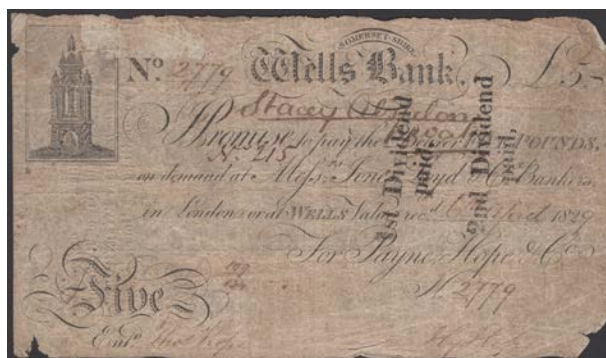 SOMERSET-SHIRE
No. 2779 Wells Bank. £5-
Stacey
I Promise to pay the Bearer FIVE POUNDS,
No 215
on demand at Messrs. Jones Loyd & Co. Bankers,
in London or at WELLS Value recd. 1829
For Payne, Hope & Co.
No. 2779
Five
Entd. Thos Hope
1st Dividend
paid,
2nd Dividend
paid,